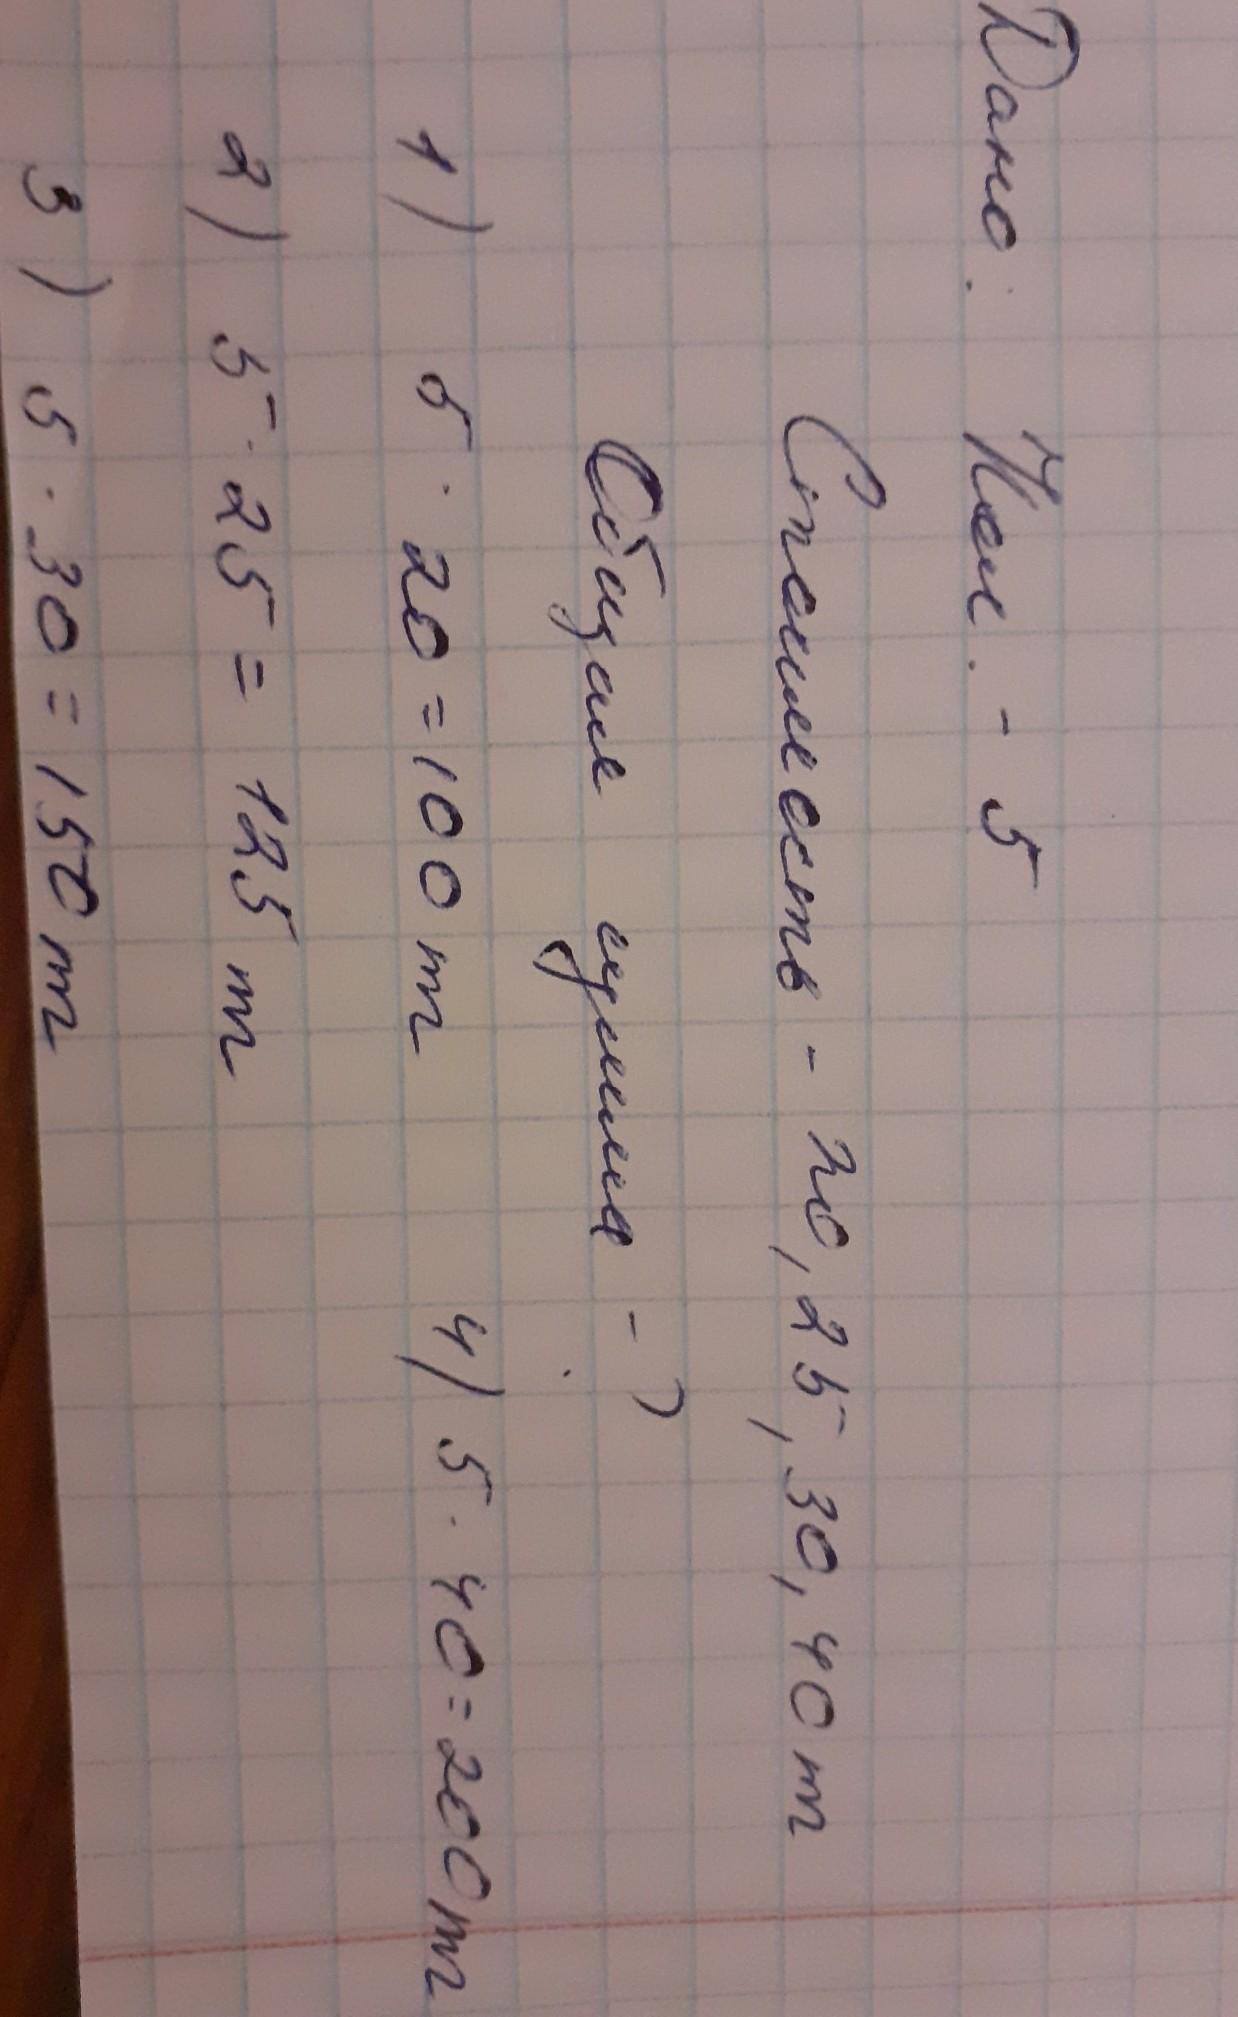 Дано: Кол. - 5
Стоимость - 20, 25, 30, 40 т
Общая сумма - ?
1) 5 · 20 = 100 т
4) 5 · 40 = 200 т
2) 5 · 25 = 125 т
3) 5 · 30 = 150 т